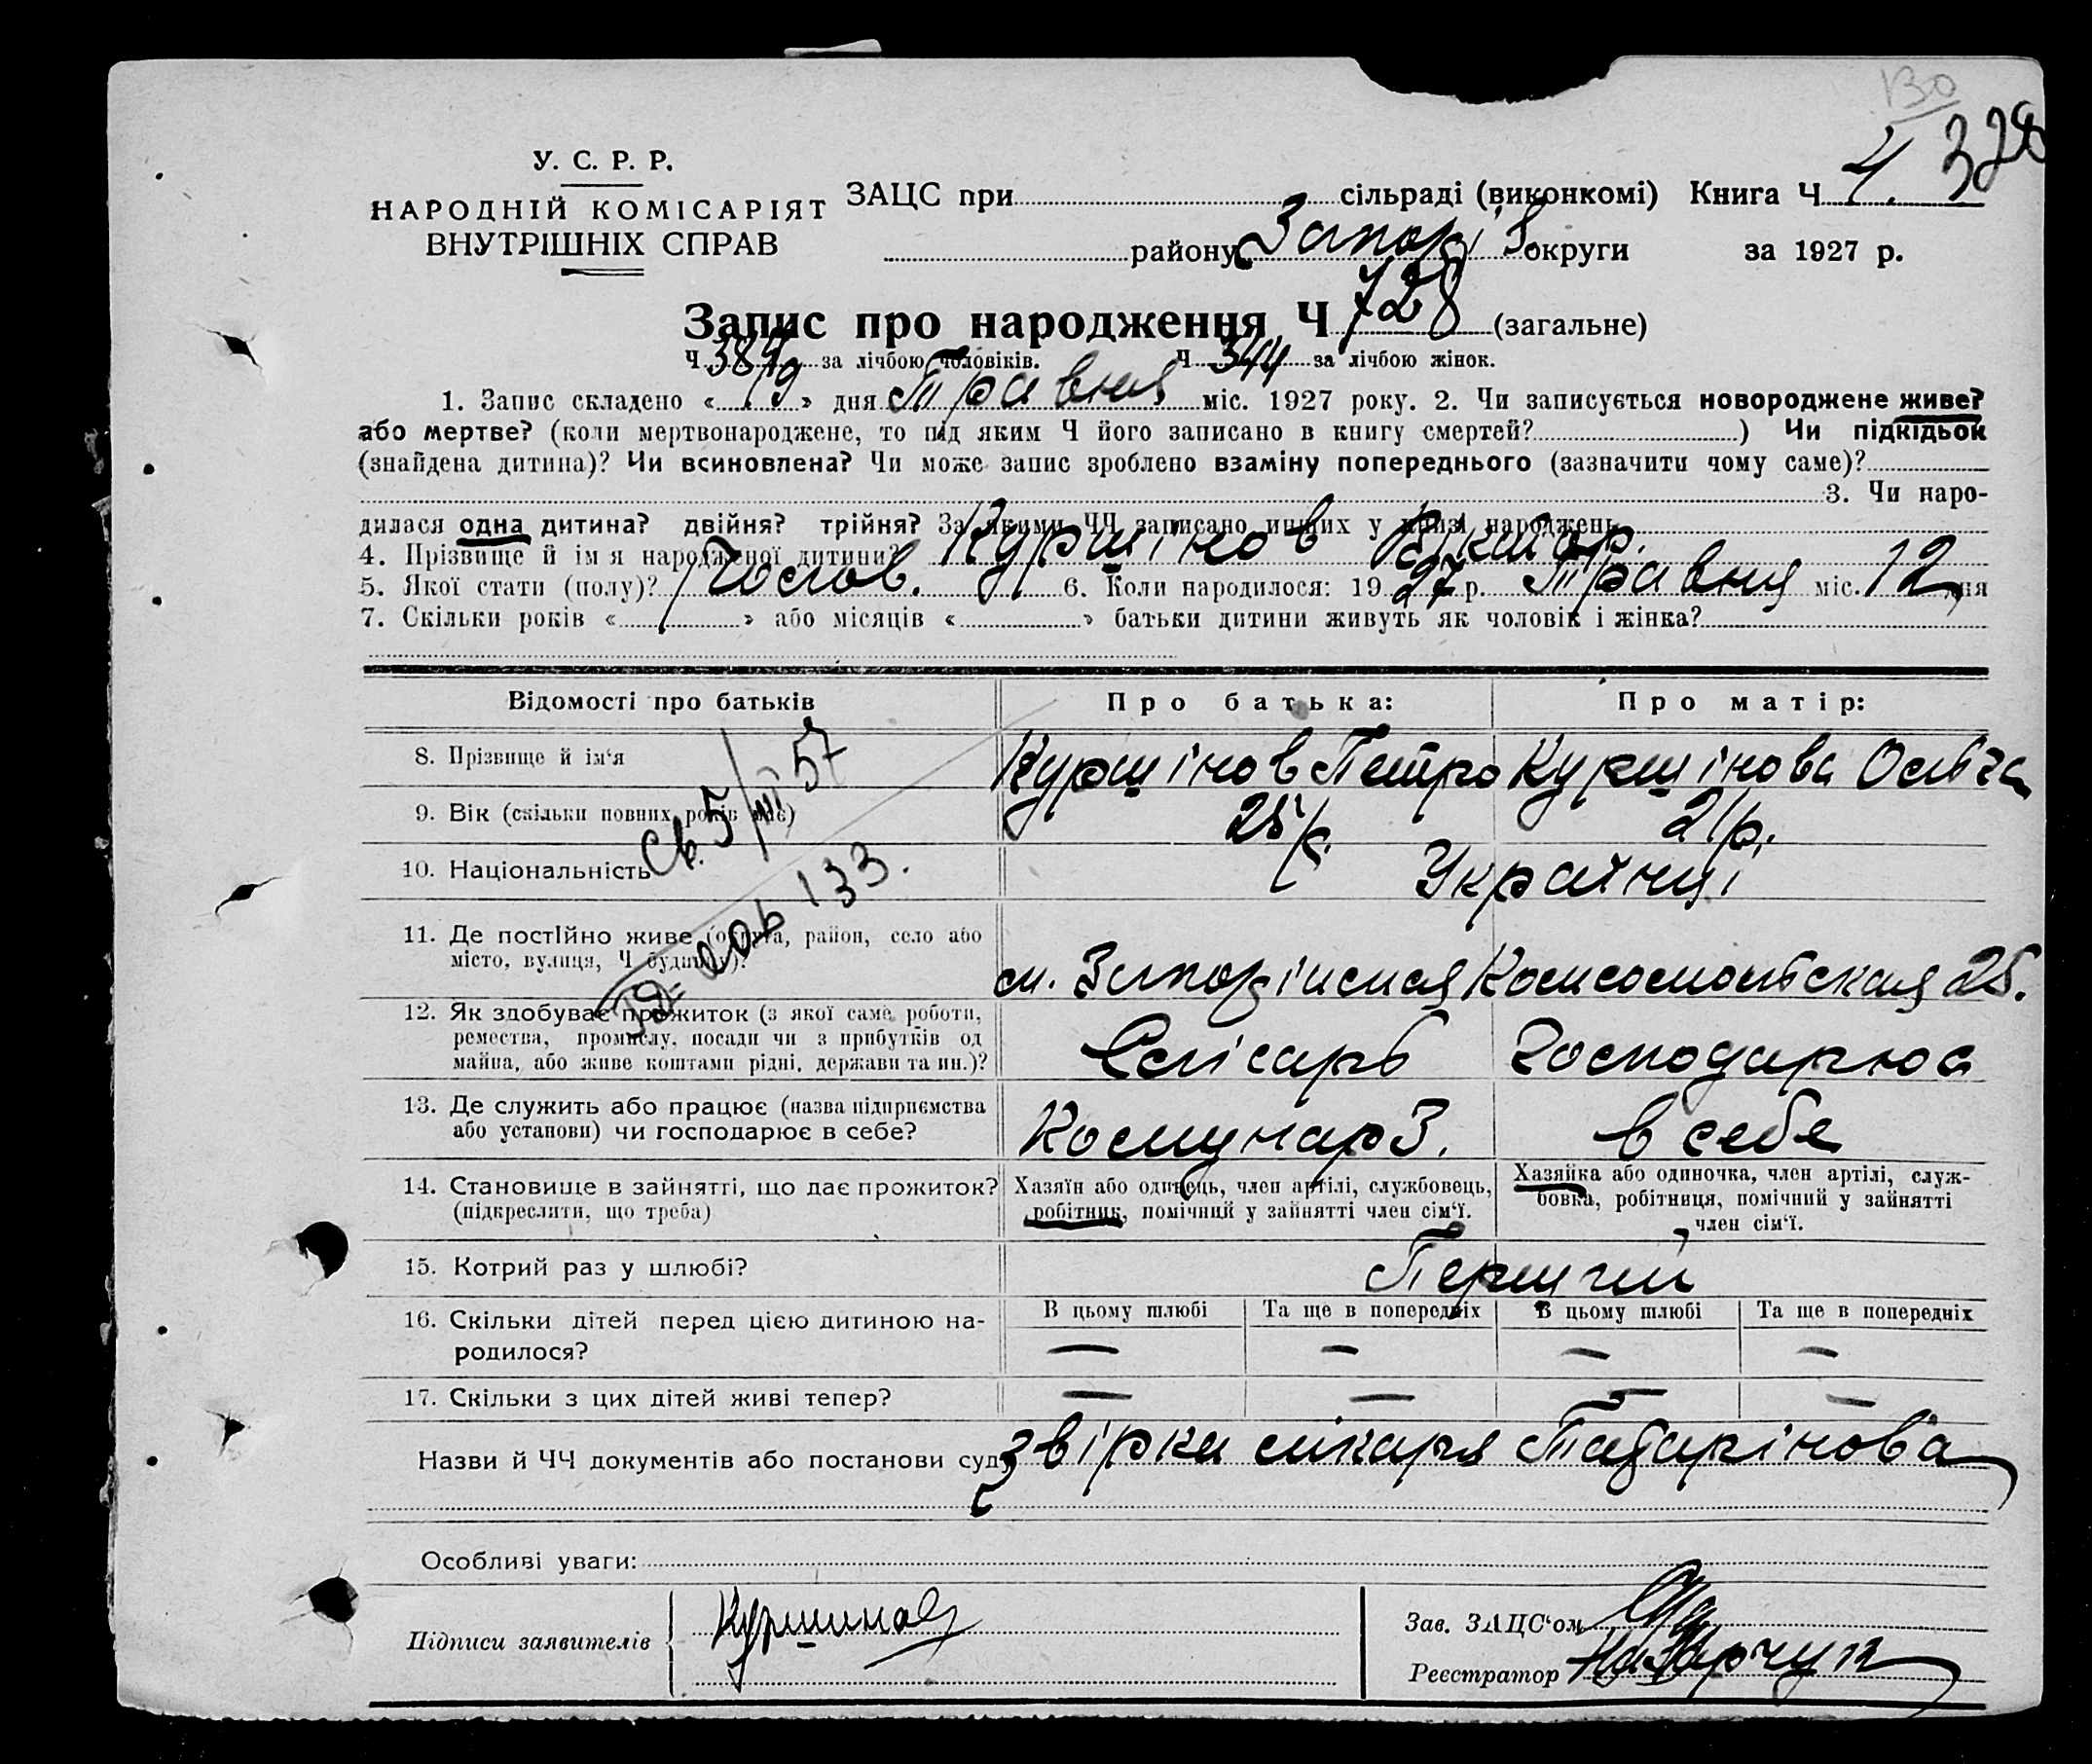 130
328
У. С. Р. Р.
НАРОДНІЙ КОМІСАРІЯТ
ВНУТРІШНІХ СПРАВ
ЗАЦС при сільраді (виконкомі) Книга Ч 4.
району Запоріз. округи за 1927 р.
Запис про народження Ч 728 (загальне)
Ч 384 за лічбою чоловіків. Ч 344 за лічбою жінок.
1. Запис складено « 19 » дня Травня міс. 1927 року. 2. Чи записується новороджене живе?
або мертве? (коли мертвонароджене, то під яким Ч його записано в книгу смертей? ) Чи підкідьок
(знайдена дитина)? Чи всиновлена? Чи може запис зроблено взаміну попереднього (зазначити чому саме)?
3. Чи наро-
дилася одна дитина? двійня? трійня? За якими ЧЧ записано инших у книзі народжень
4. Прізвище й ім я народженої дитини? Куршінов Віктор.
5. Якої стати (полу)? Чолов. 6. Коли народилося: 1927 р. Травня міс. 12 дня
7. Скільки років « » або місяців « » батьки дитини живуть як чоловік і жінка?
Відомості про батьків Про батька: Про матір:
8. Прізвище й ім'я Куршінов Петро Куршінова Ольга
9. Вік (скільки повних років має) 25 р. 21 р.
Св. 5/III 57
10. Національність Українці
133.
11. Де постійно живе (округа, район, село або
місто, вулиця, Ч будинку)? м. Запоріжжя Комсомольская 25.
12. Як здобуває прожиток (з якої саме роботи,
ремества, промислу, посади чи з прибутків од
майна, або живе коштами рідні, держави та ин.)? Слісарь Господарюе
13. Де служить або працює (назва підприємства
або установи) чи господарює в себе? Комунар З. в себе
14. Становище в зайнятті, що дає прожиток?
(підкреслити, що треба)
Хазяїн або одинець, член артілі, службовець,
робітник, помічний у зайнятті член сім'ї.
Хазяйка або одиночка, член артілі, служ-
бовка, робітниця, помічний у зайнятті
член сім'ї.
15. Котрий раз у шлюбі? Перший
16. Скільки дітей перед цією дитиною на-
родилося?
В цьому шлюбі Та ще в попередніх В цьому шлюбі Та ще в попередніх
— — — —
17. Скільки з цих дітей живі тепер? — — — —
Назви й ЧЧ документів або постанови суду Звірка лікаря
Особливі уваги:
Підписи заявителів Куршинов
Зав. ЗАЦС'ом
Реєстратор